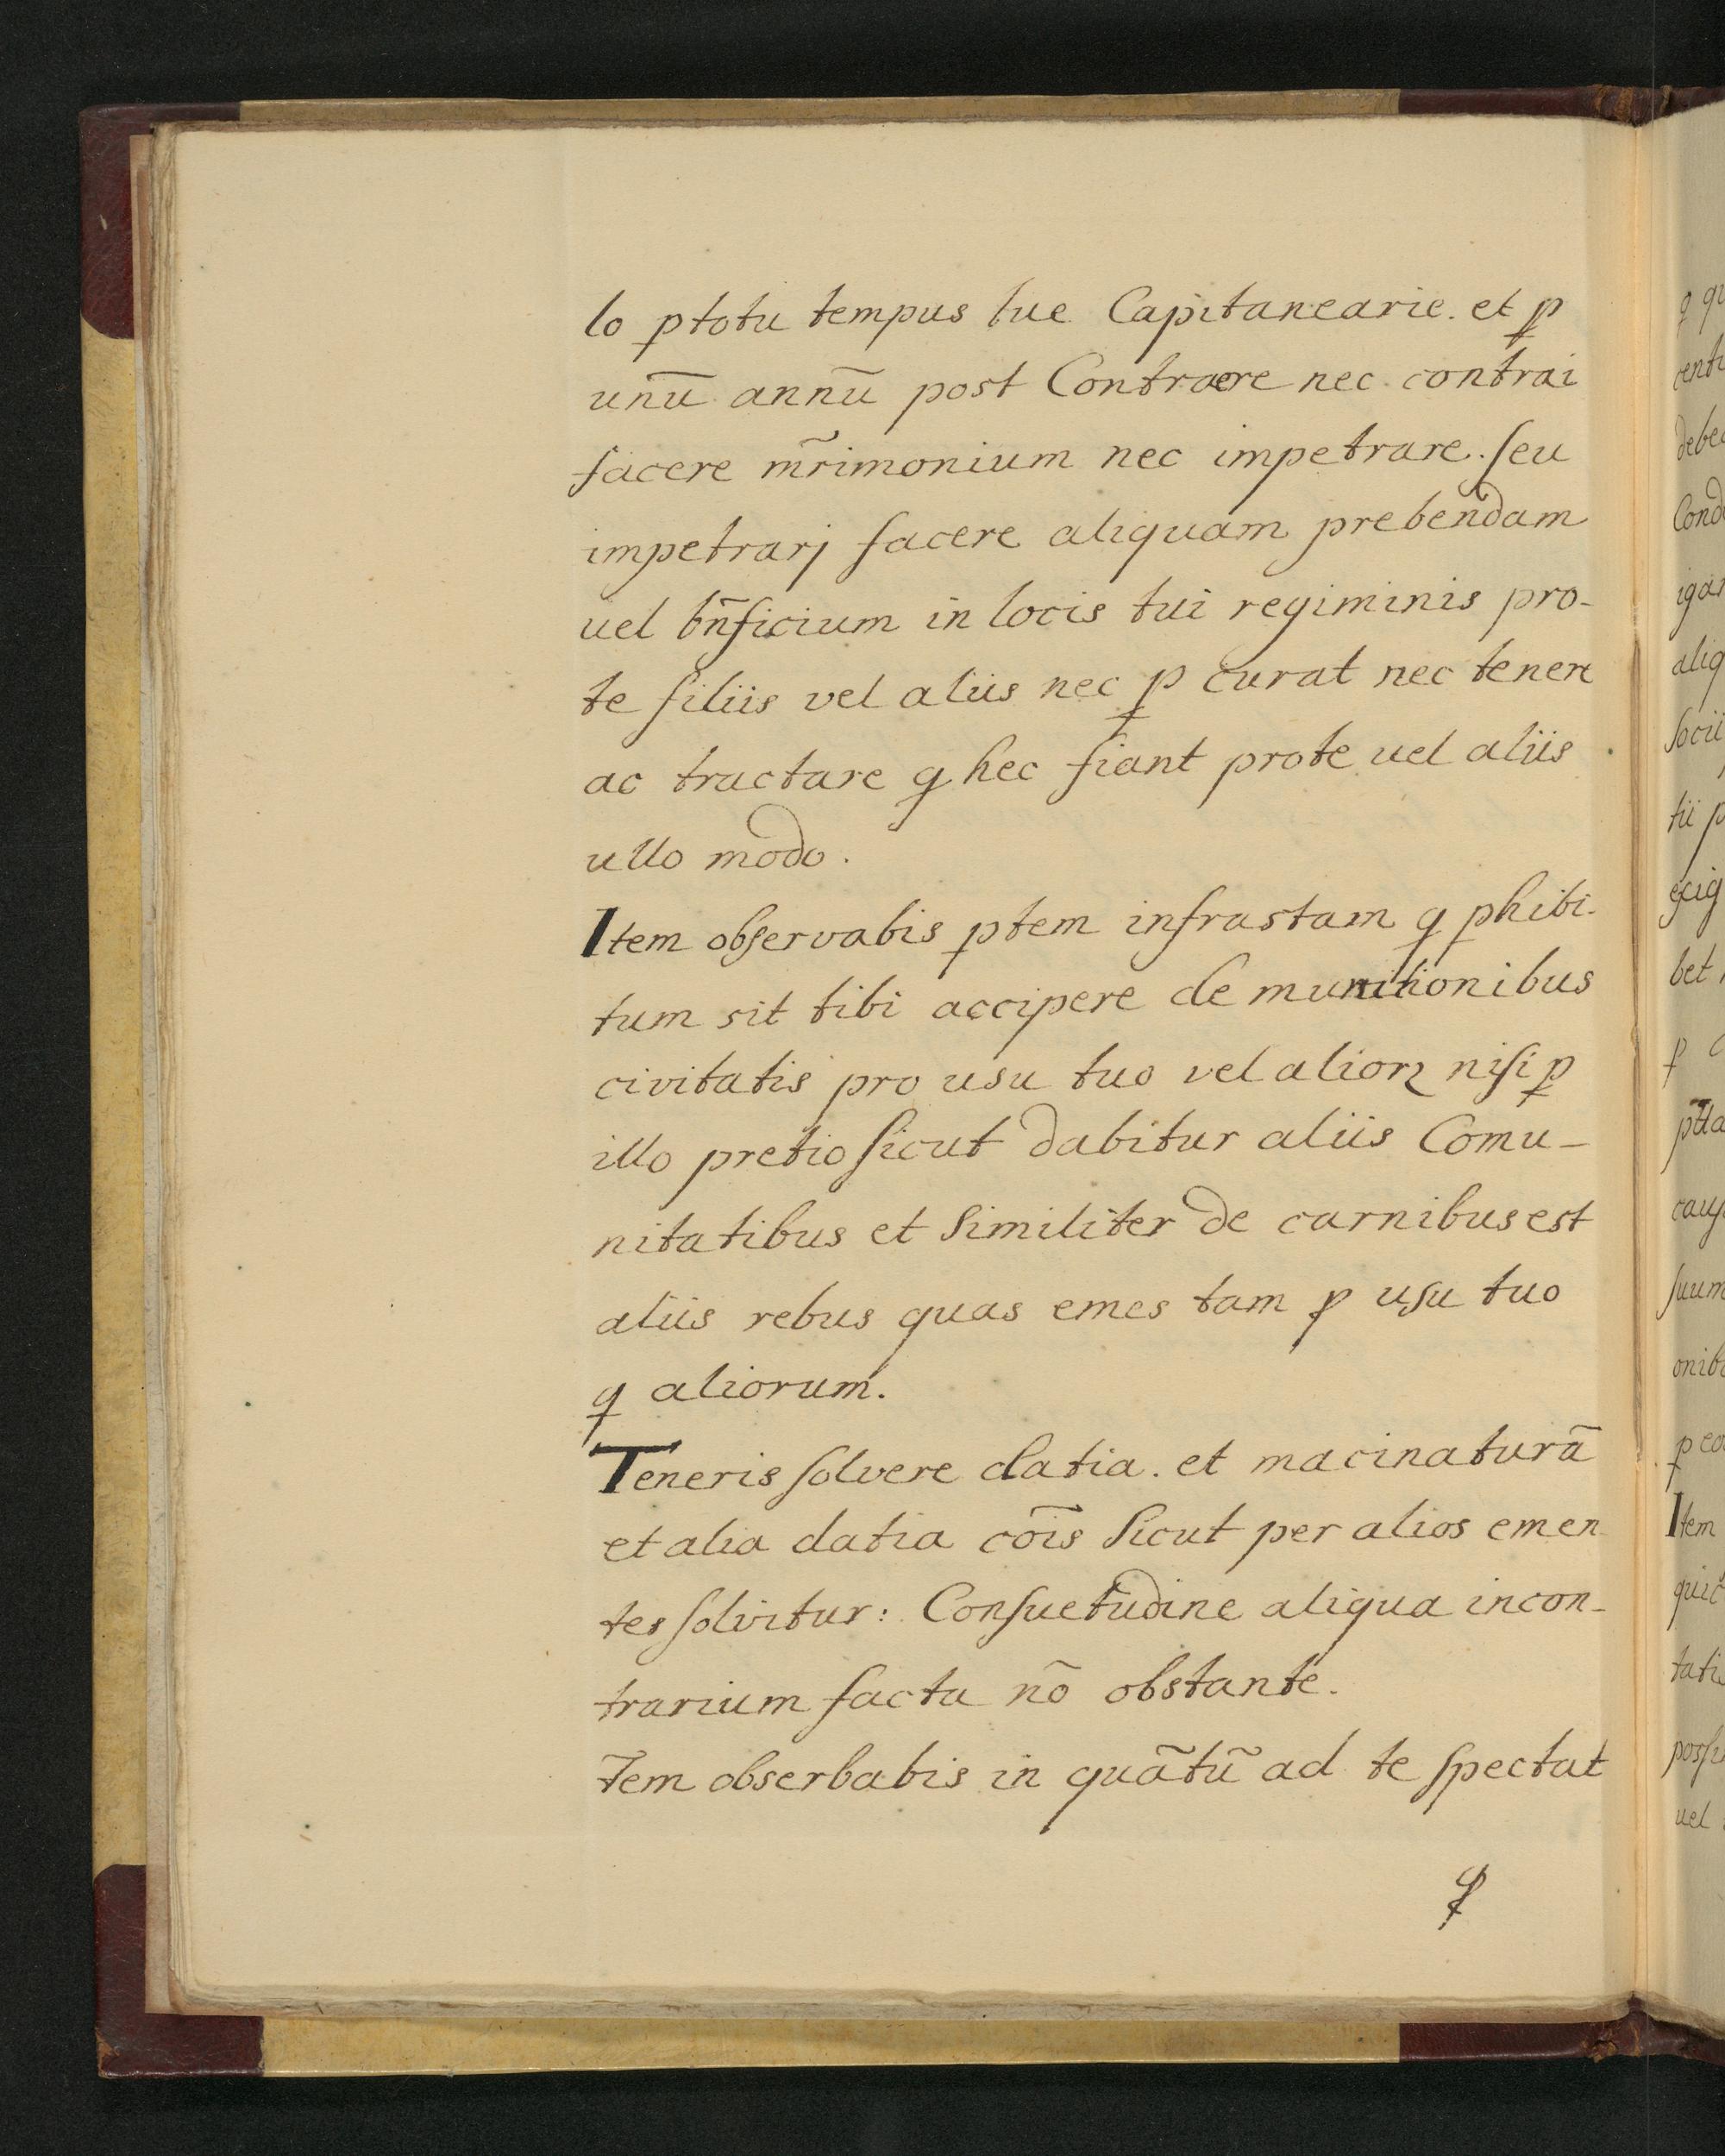 lo ꝑtotu tempus tue Capitanearie. et ꝑ
unū annū post Contraere nec contrai
facere mr̃imonium nec impetrare. seu
impetrarj facere aliquam prebendam
uel bñficium in locis tui regiminis pro-
te filiis vel aliis nec ꝑ curat nec tenere
ac tractare ꝗ hec fiant prote uel aliis
ullo modo.
Item observabis ꝑtem infrastam ꝗ ꝓhibi-
tum sit tibi accipere de munitionibus
civitatis pro usu tuo vel alioꝝ nisi ꝑ
illo pretio sicut dabitur aliis Comu-
nitatibus et similiter de carnibus est
aliis rebus quas emes tam ꝓ usu tuo
ꝗ aliorum.
Teneris solvere datia. et macinaturã
et alia datia cõis sicut per alios emen
tes solvitur: Consuetudine aliqua incon-
trarium facta nõ obstante.
Item obserbabis in quãtũ ad te spectat
ꝗ
ꝗ qu
centu
debea
Cond
igar
aliq
socii
tii p
exig
bet
ꝑ
caus
suum
onibu
ꝑ ea
Item
quic
tatis
possu
uel